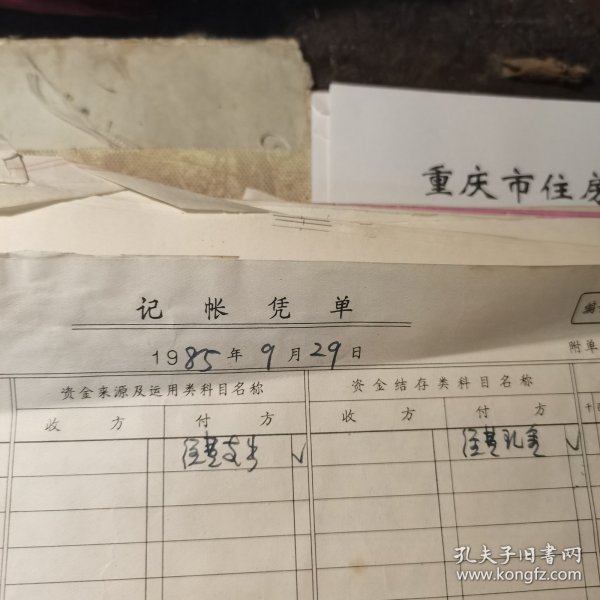 重庆市住房
记帐凭单
1985年9月29日
附单
资金来源及运用类科目名称
资金结存类科目名称
收方
付方
收方
付方
千
经费支出
孔夫子旧书网
www.kongfz.com